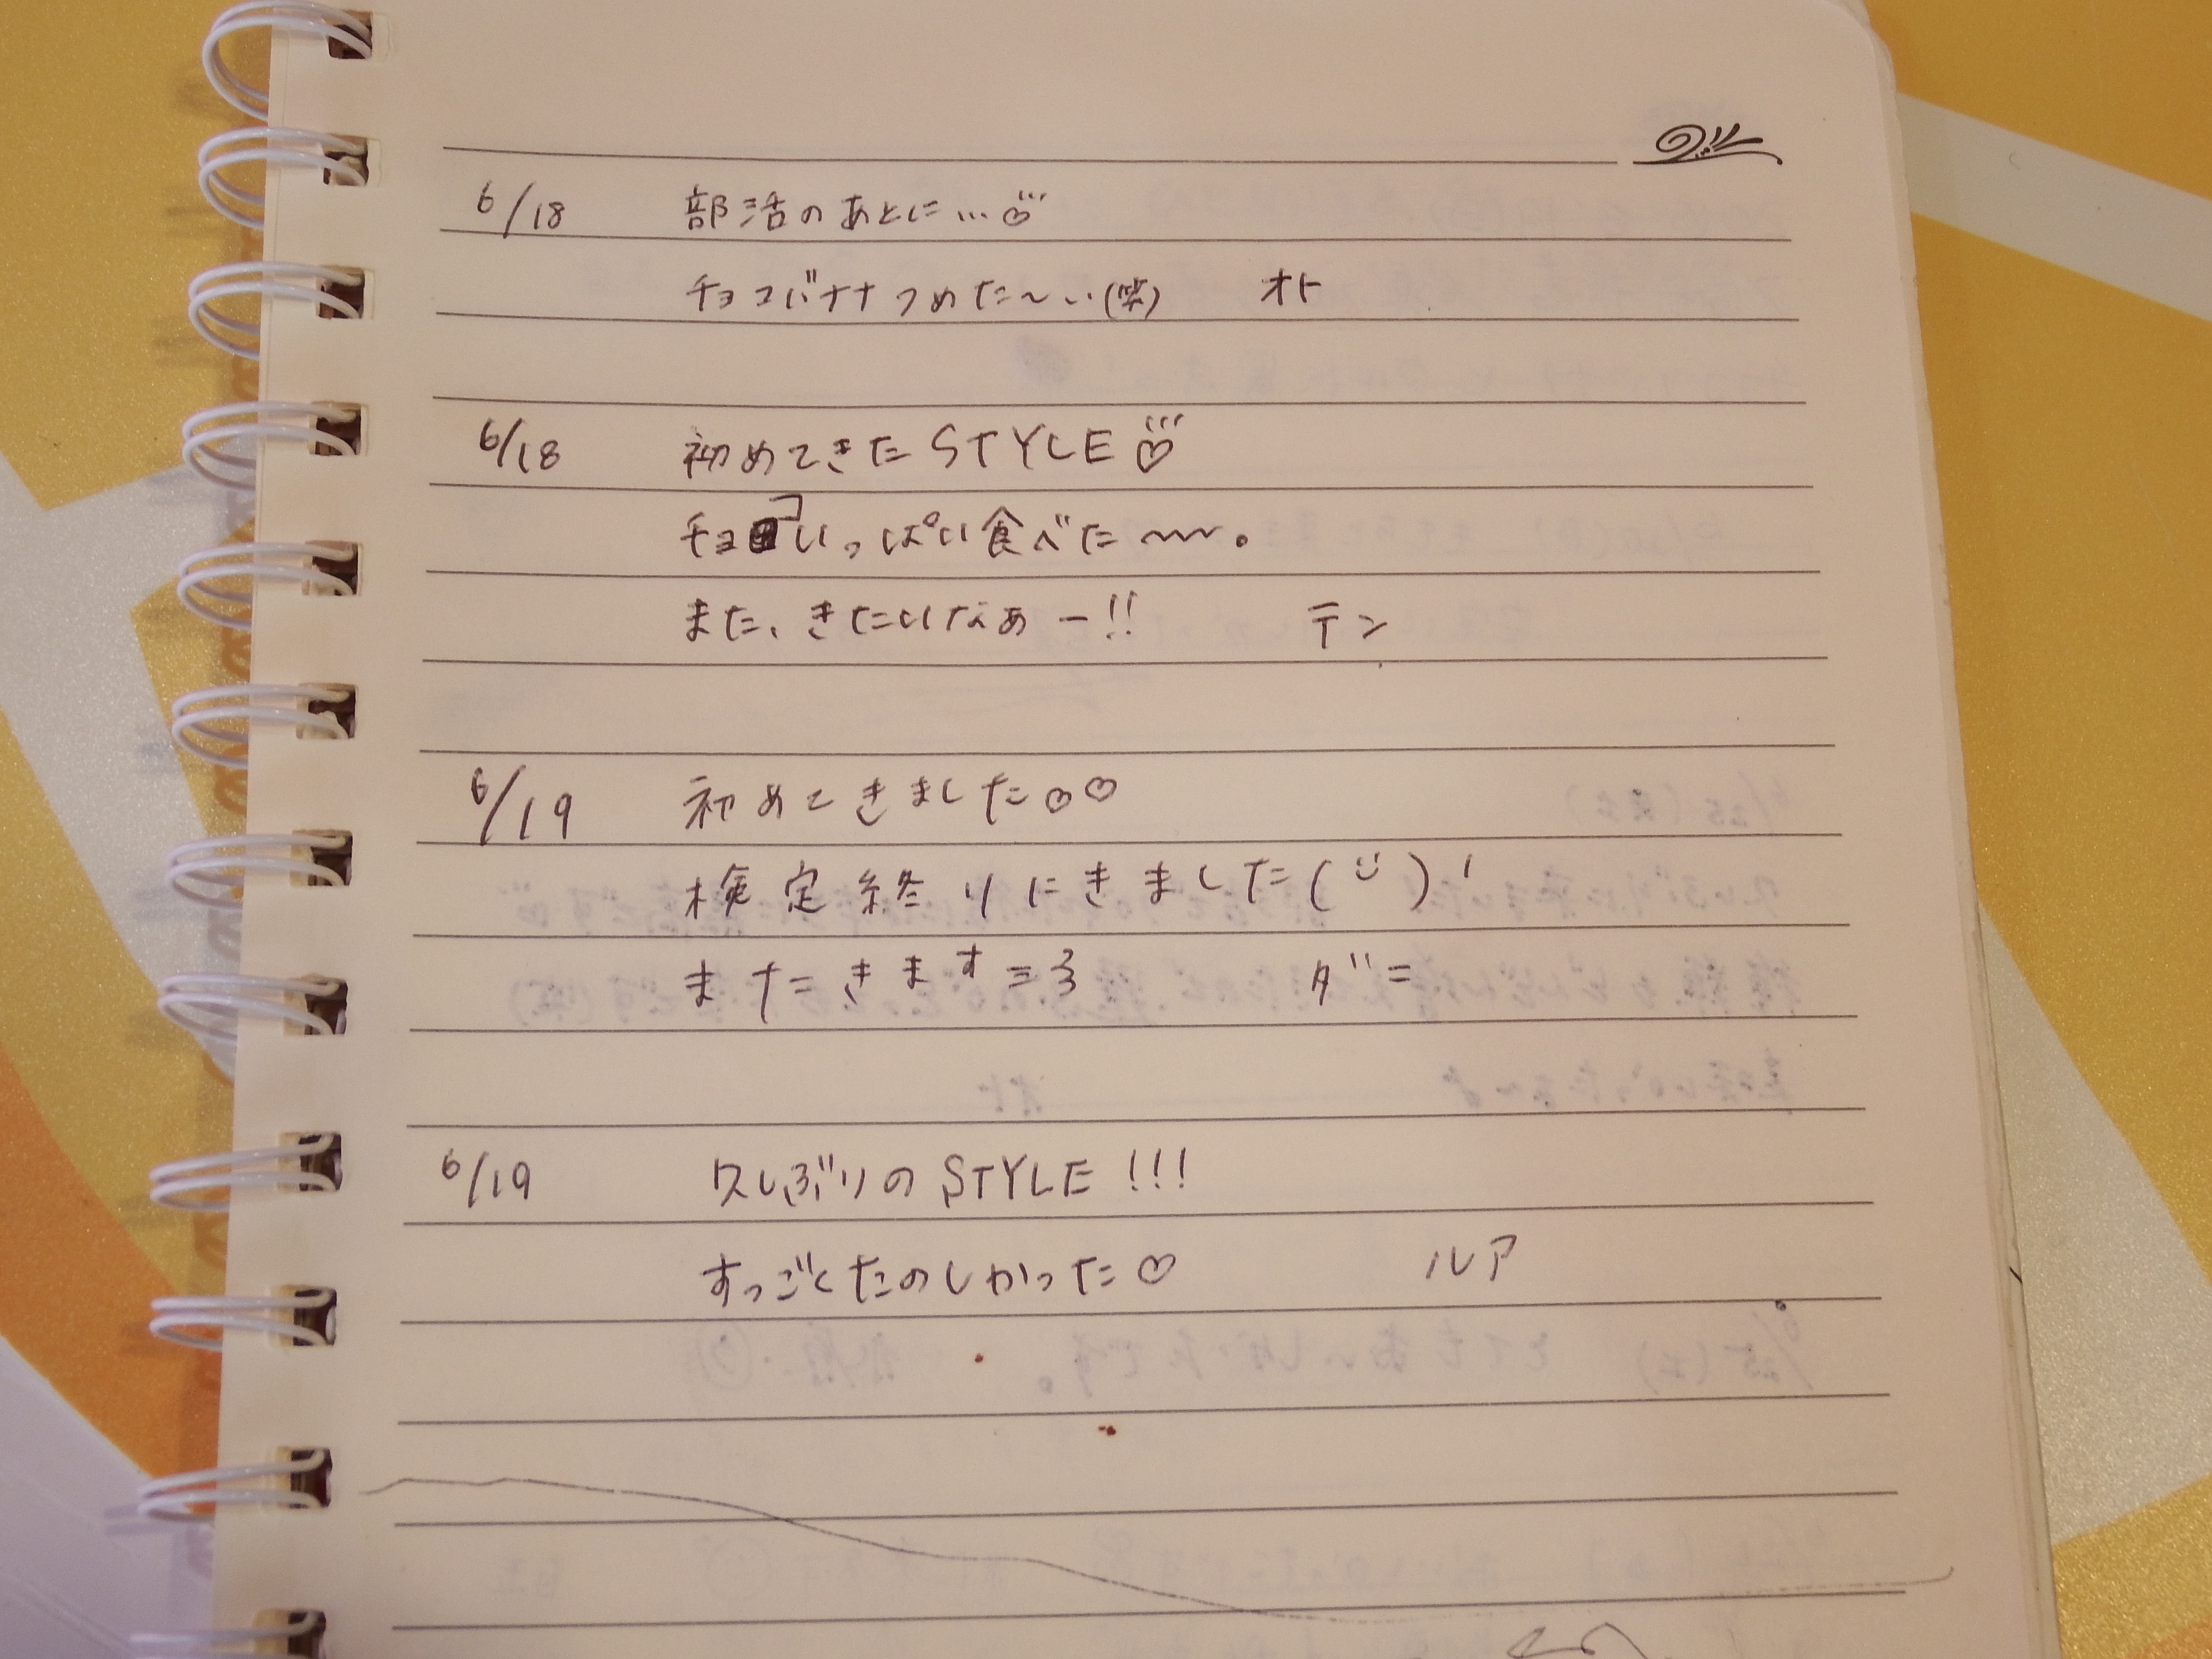 6/18 部活のあとに…♡
チョコバナナつめた〜い(笑) オト
6/18 初めてきたSTYLE♡
チョコいっぱい食べた〜〜。
また、きたいなあー!! テン
6/19 初めてきました♡♡
検定終りにきました(ü)'
またきます=3 ダニ
6/19 久しぶりのSTYLE!!!
すっごくたのしかった♡ ルア